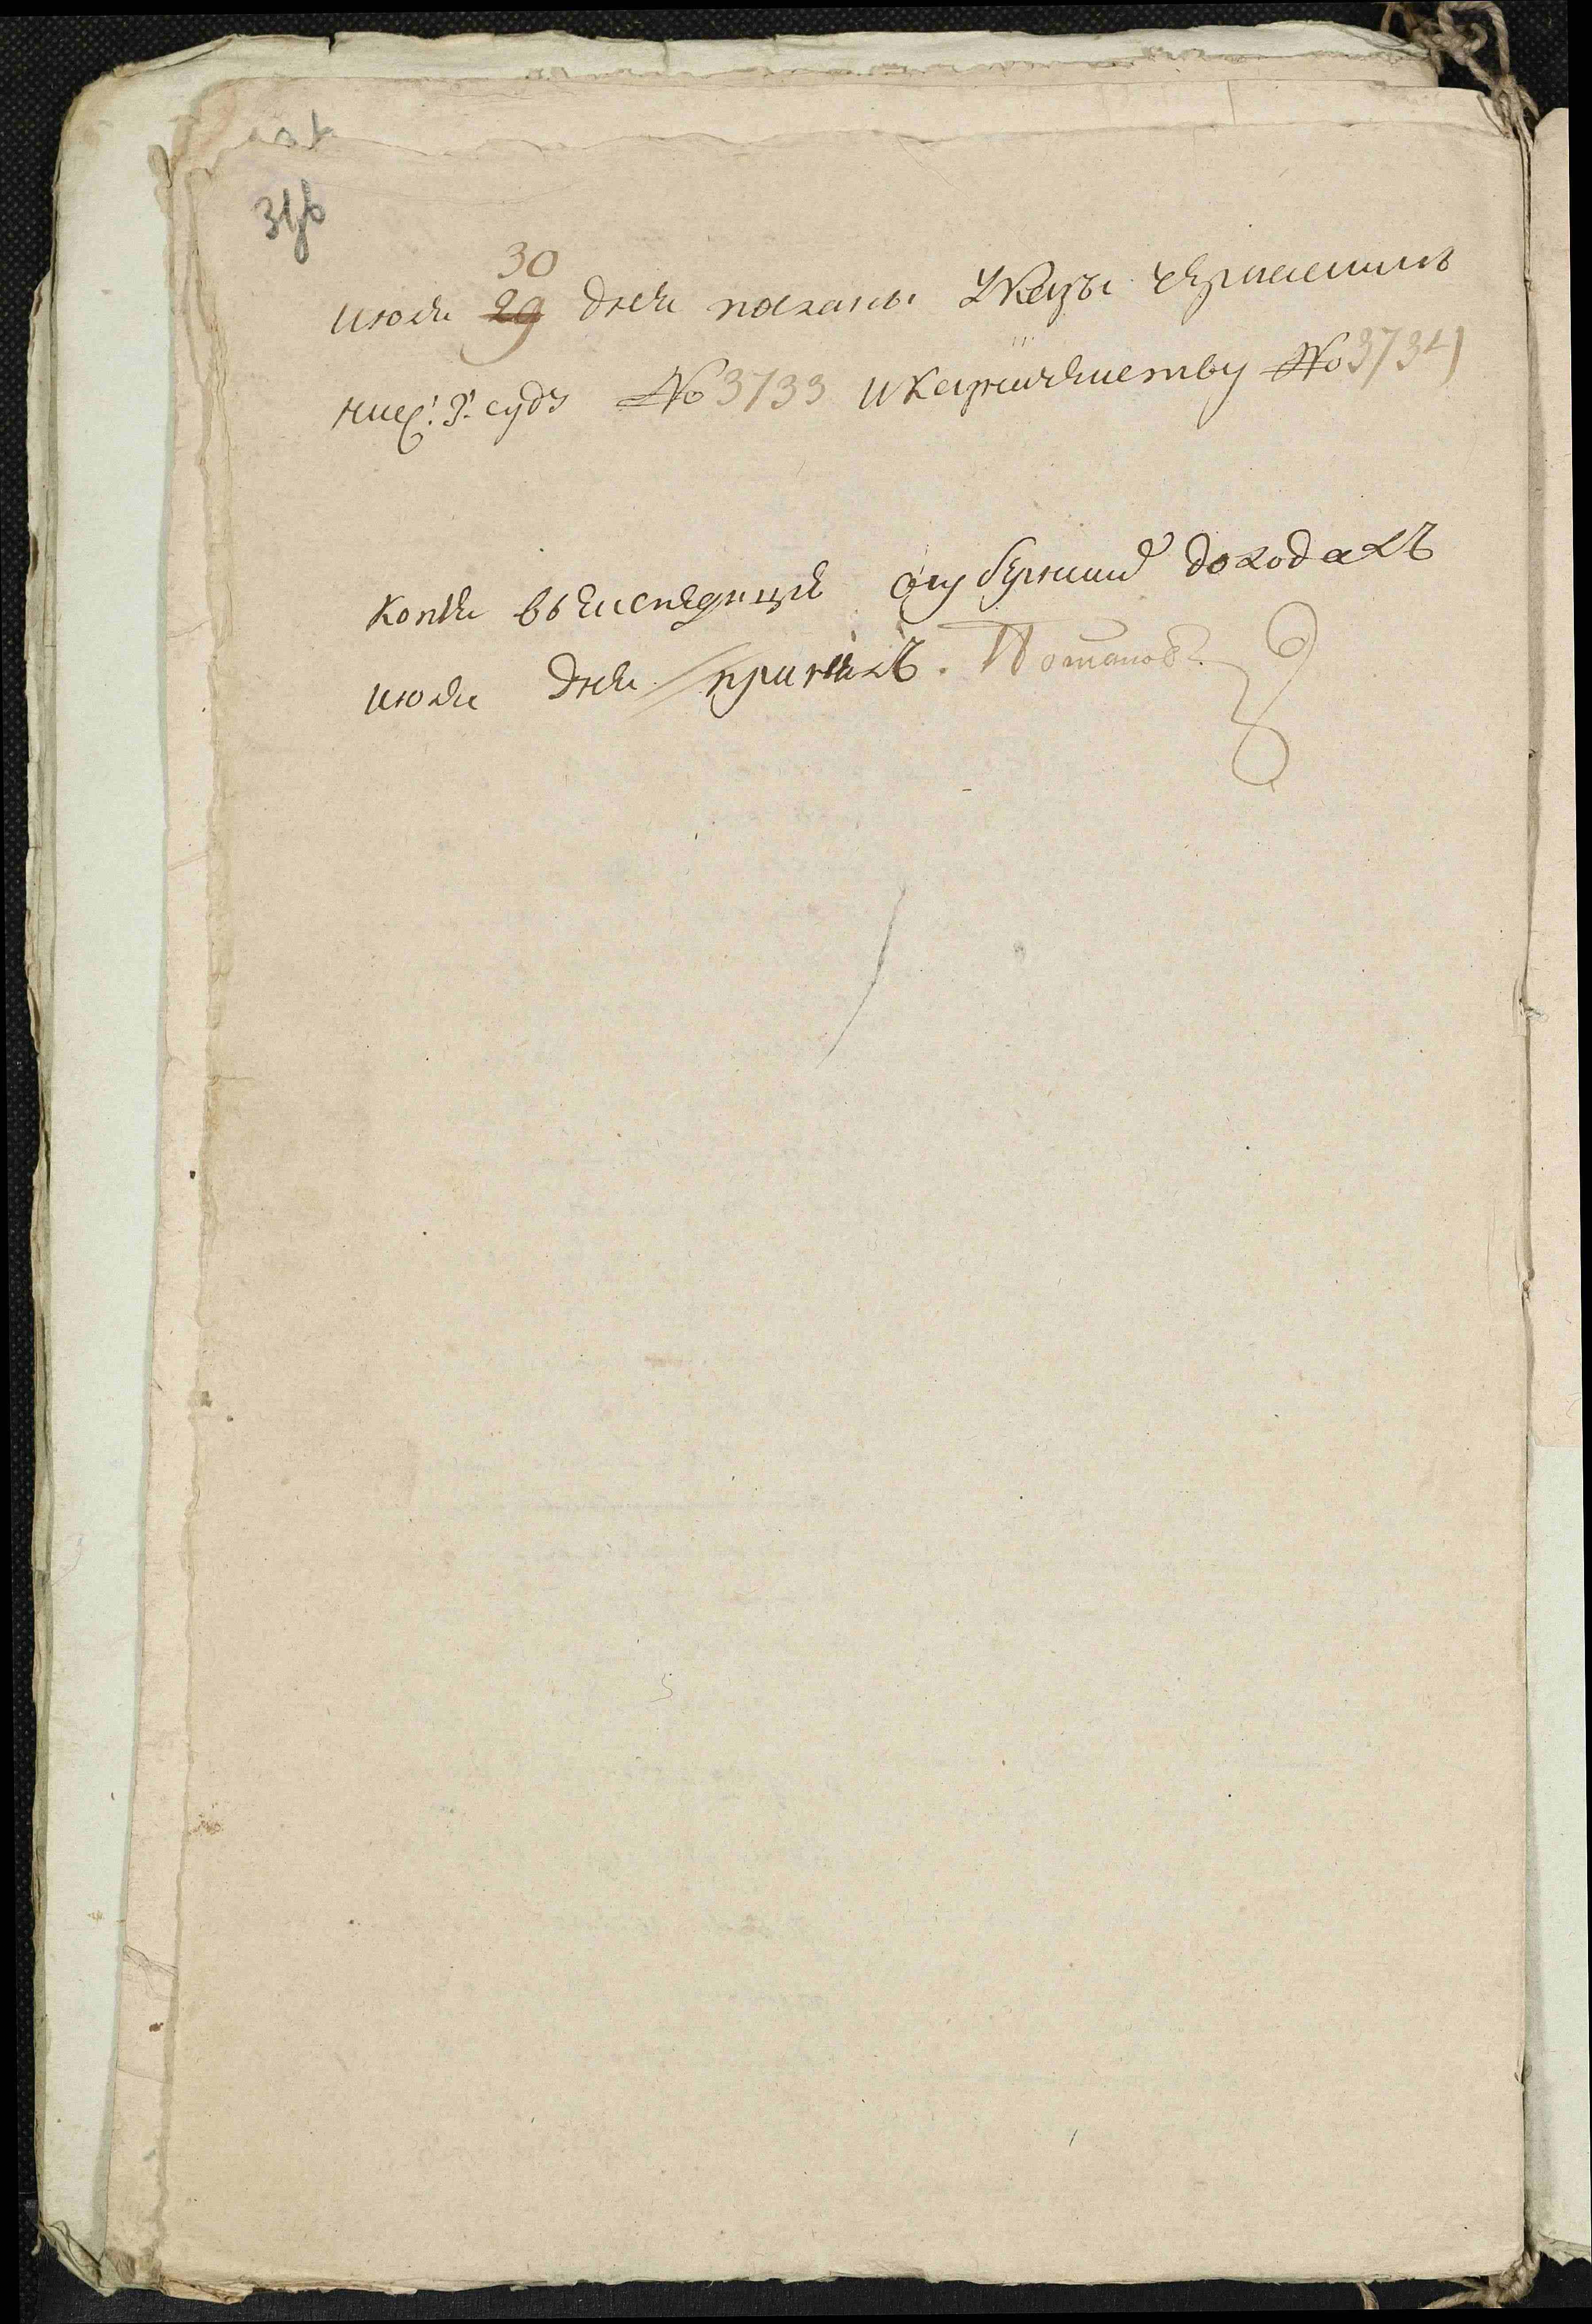 30
июля 29 дня посланы указы чермскимъ
ниж: з: судъ № 3733 и казначеиству № 3734
копiя в экспедицiю о губернскихъ доходахъ
июля дня принялъ. Потапов